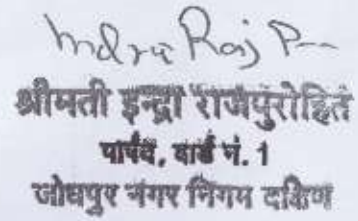 Indra Raj P
श्रीमती इन्द्रा राजपुरोहित
पार्षद, वार्ड नं. 1
जोधपुर नगर निगम दक्षिण